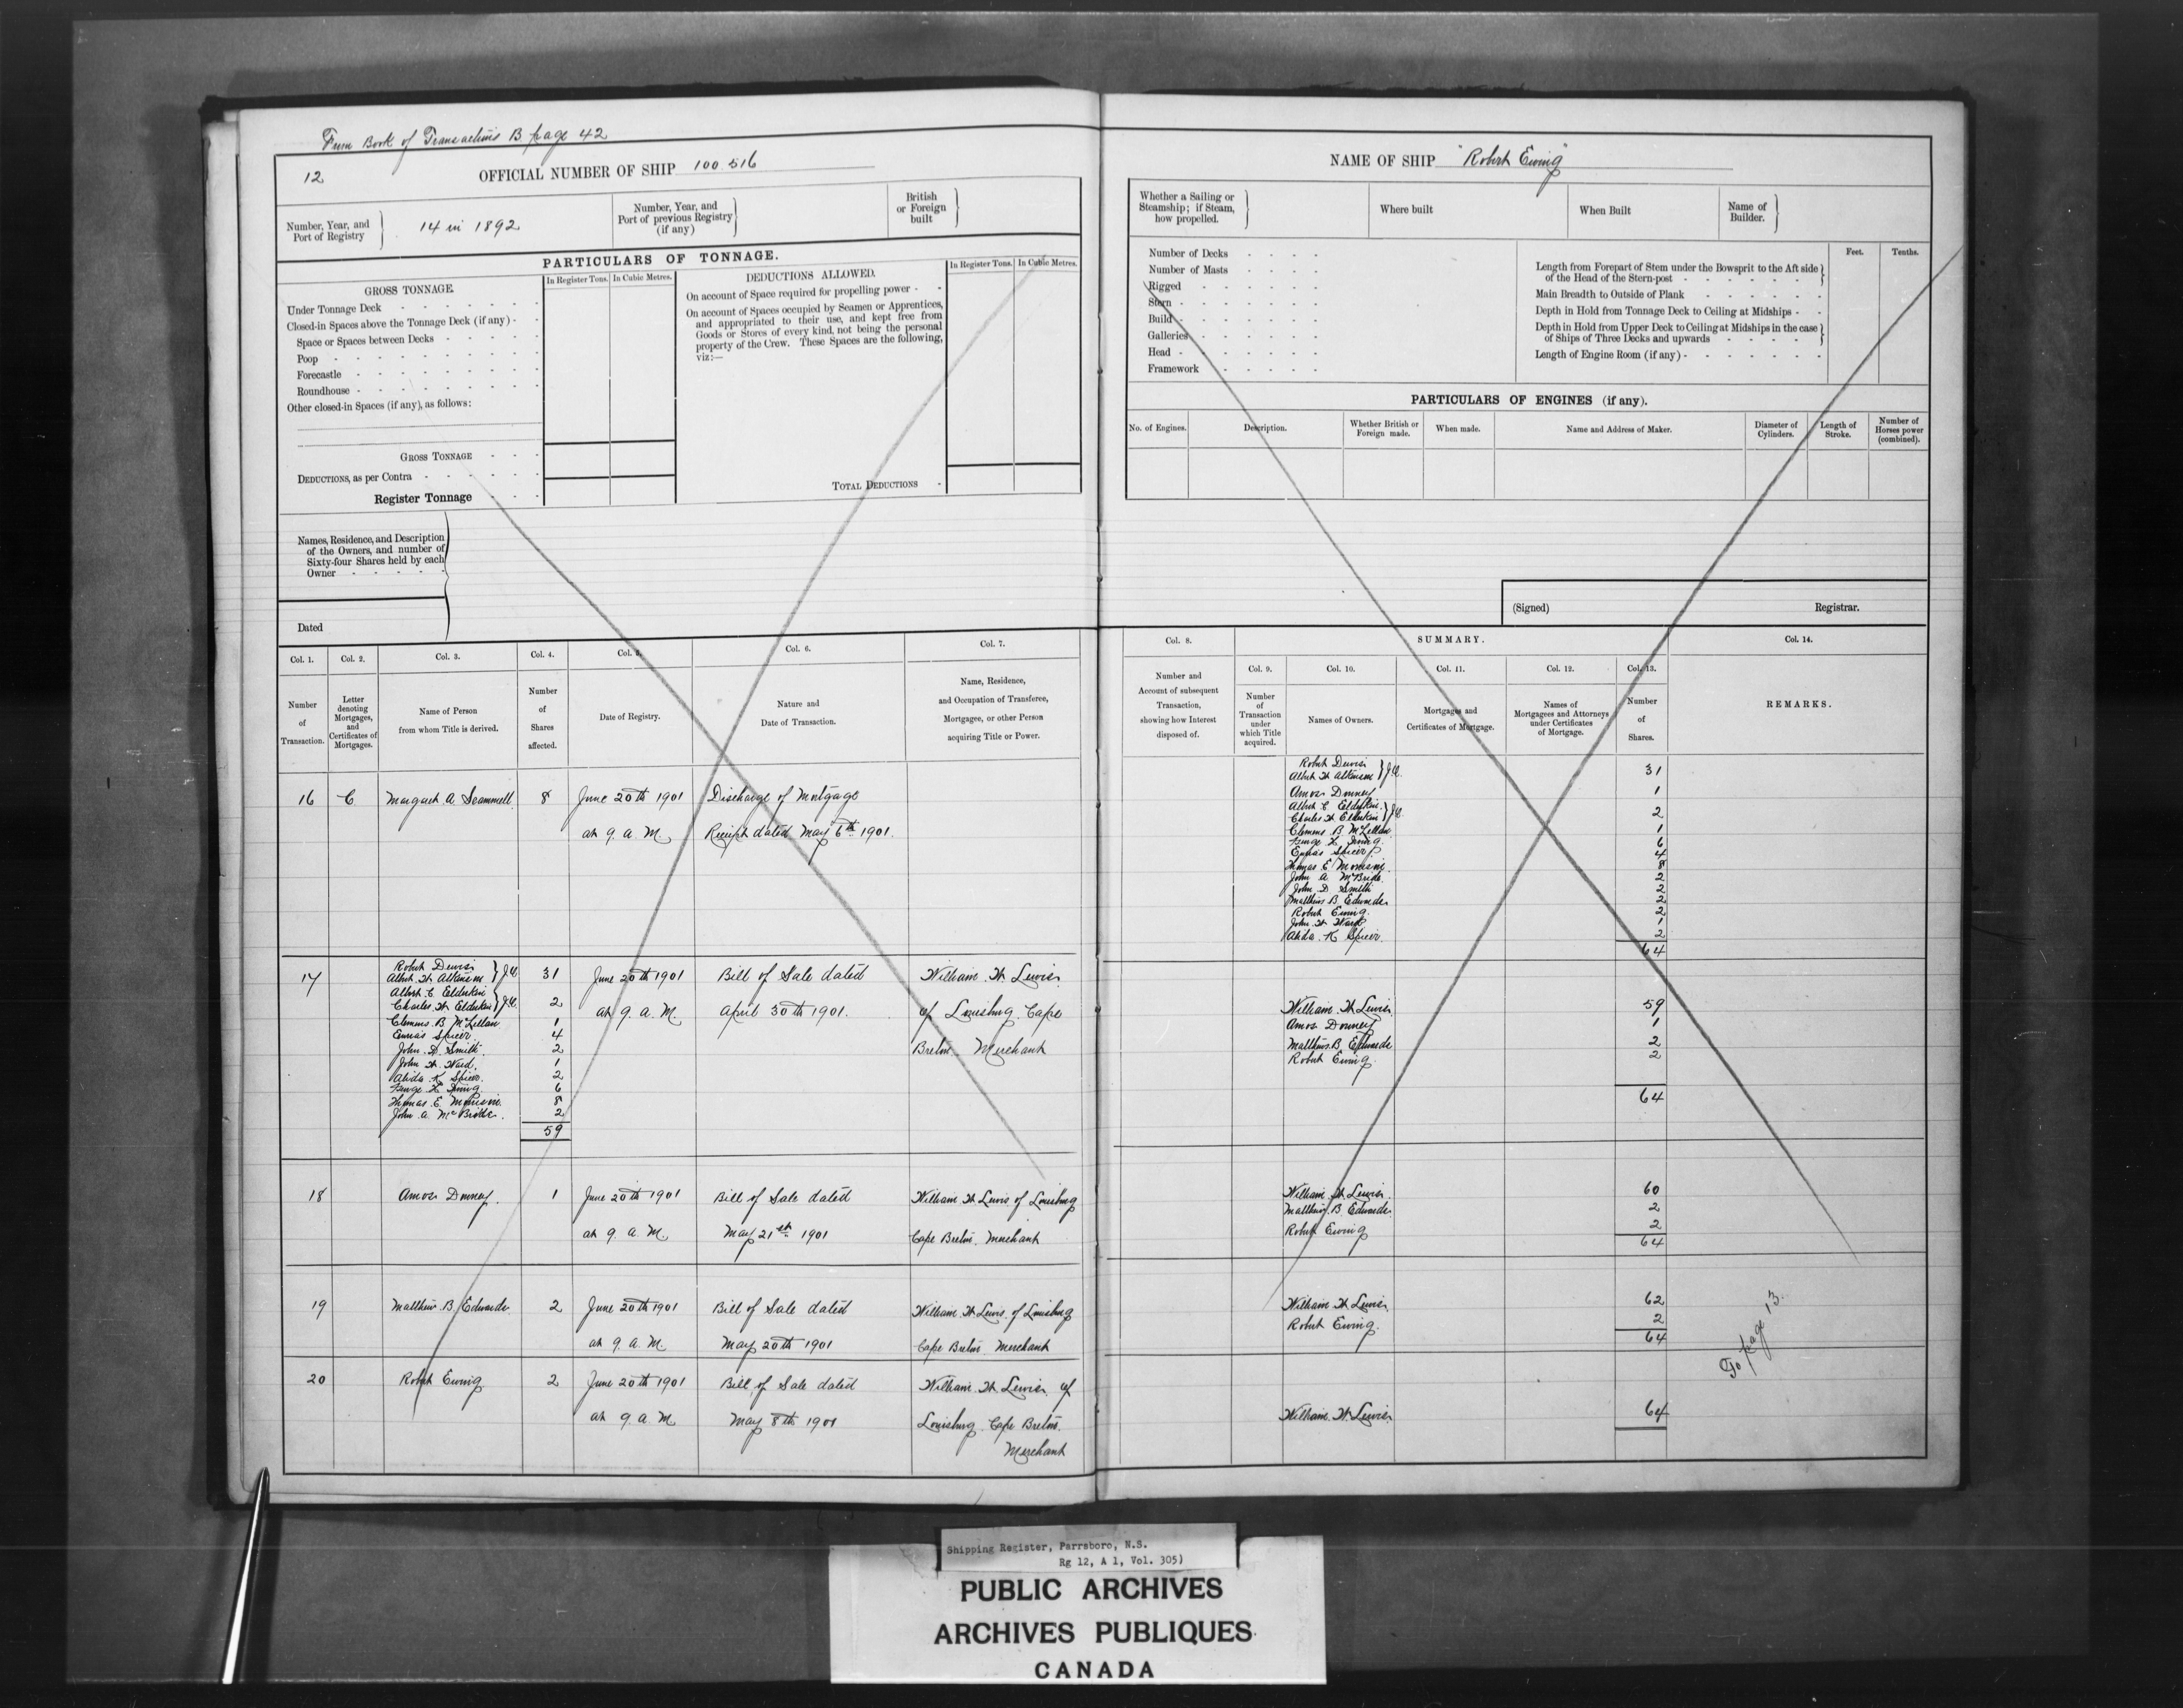 From Book of Transactions B page 42
12
OFFICIAL NUMBER OF SHIP 100.516
Number, Year, and
Port of Registry
14 in 1892
Number, Year, and
Port of previous Registry
(if any)
British
or Foreign
built
PARTICULARS OF TONNAGE.
GROSS TONNAGE.
In Register Tons.
In Cubic Metres.
Under Tonnage Deck
Closed-in Spaces above the Tonnage Deck (if any)
Space or Spaces between Decks
Poop
Forecastle
Roundhouse
Other closed-in Spaces (if any), as follows:
GROSS TONNAGE
DEDUCTIONS, as per Contra
Register Tonnage
DEDUCTIONS ALLOWED.
In Register Tons.
In Cubic Metres.
On account of Space required for propelling power
On account of Spaces occupied by Seamen or Apprentices,
and appropriated to their use, and kept free from
Goods or Stores of every kind, not being the personal
property of the Crew. These Spaces are the following,
viz:—
TOTAL DEDUCTIONS
Names, Residence, and Description
of the Owners, and number of
Sixty-four Shares held by each
Owner
Dated
Col. 1.
Number
of
Transaction.
Col. 2.
Letter
denoting
Mortgages,
and
Certificates of
Mortgages.
Col. 3.
Name of Person
from whom Title is derived.
Col. 4.
Number
of
Shares
affected.
Col. 5.
Date of Registry.
Col. 6.
Nature and
Date of Transaction.
Col. 7.
Name, Residence,
and Occupation of Transferee,
Mortgagee, or other Person
acquiring Title or Power.
16 C Margaret A. Scammell 8 June 20th 1901 Discharge of Mortgage
at 9. a. M. Receipt dated May 6th 1901.
17
Robert Dewis
Albert W Atkinson } J.O. 31
Albert C Elderkin
Charles W Elderkin } J.O. 2
Clemens B McLellan 1
Eunas Spicer 4
John D. Smith 2
John W Ward. 1
Alida K Spicer. 2
George H Ewing 6
Thomas E Morrison 8
John A McBride. 2
59
June 20th 1901
at 9. a. M.
Bill of Sale dated
April 30th 1901.
William. W. Lewis
of Louisburg. Cape
Breton Merchant
18 Amos Downey. 1 June 20th 1901 Bill of Sale dated William W Lewis of Louisburg
at 9. a. M. May 21st 1901 Cape Breton. Merchant
19 Matthew B Edwards 2 June 20th 1901 Bill of Sale dated William W Lewis. of Louisburg
at 9 a. M. May 20th 1901 Cape Breton Merchant
20 Robert Ewing 2 June 20th 1901 Bill of Sale dated William W Lewis. of
at 9 a. M May 8th 1901 Louisburg Cape Breton.
Merchant
NAME OF SHIP "Robert Ewing"
Whether a Sailing or
Steamship; if Steam,
how propelled.
Where built
When Built
Name of
Builder.
Number of Decks
Number of Masts
Rigged
Stern
Build
Galleries
Head
Framework
Feet.
Tenths.
Length from Forepart of Stem under the Bowsprit to the Aft side
of the Head of the Stern-post
Main Breadth to Outside of Plank
Depth in Hold from Tonnage Deck to Ceiling at Midships
Depth in Hold from Upper Deck to Ceiling at Midships in the case
of Ships of Three Decks and upwards
Length of Engine Room (if any)
PARTICULARS OF ENGINES (if any).
No. of Engines.
Description.
Whether British or
Foreign made.
When made.
Name and Address of Maker.
Diameter of
Cylinders.
Length of
Stroke.
Number of
Horses power
(combined).
(Signed)
Registrar.
Col. 8.
Number and
Account of subsequent
Transaction,
showing how Interest
disposed of.
SUMMARY.
Col. 9.
Number
of
Transaction
under
which Title
acquired.
Col. 10.
Names of Owners.
Col. 11.
Mortgages and
Certificates of Mortgage.
Col. 12.
Names of
Mortgagees and Attorneys
under Certificates
of Mortgage.
Col. 13.
Number
of
Shares.
Col. 14.
REMARKS.
Robert Dewis
Albert W Atkinson } J.O. 31
Amos Downey 1
Albert C Elderkin
Charles W Elderkin } J.O. 2
Clemens B McLellan 1
George H Ewing 6
Eunas Spicer 4
Thomas E Morrison. 8
John A McBride. 2
John D Smith 2
Matthew B Edwards 2
Robert Ewing. 2
John W Ward 1
Alida. K Spicer. 2
64
William. W Lewis 59
Amos Downey 1
Matthew B. Edwards 2
Robert Ewing. 2
64
William W Lewis 60
Matthew B Edwards. 2
Robert Ewing 2
64
William W Lewis 62
Robert Ewing. 2
64
To page 13.
William W Lewis 64
Shipping Register, Parrsboro, N.S.
Rg 12, A 1, Vol. 305)
PUBLIC ARCHIVES
ARCHIVES PUBLIQUES
CANADA